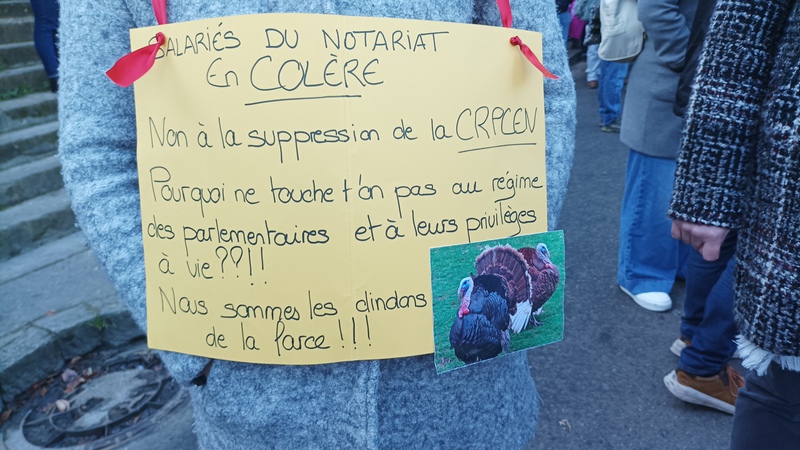 SALARIÉS DU NOTARIAT
En COLÈRE
Non à la suppression de la CRPCEN
Pourquoi ne touche t'on pas au régime
des parlementaires et à leurs privilèges
à vie??!!
Nous sommes les dindons
de la farce!!!